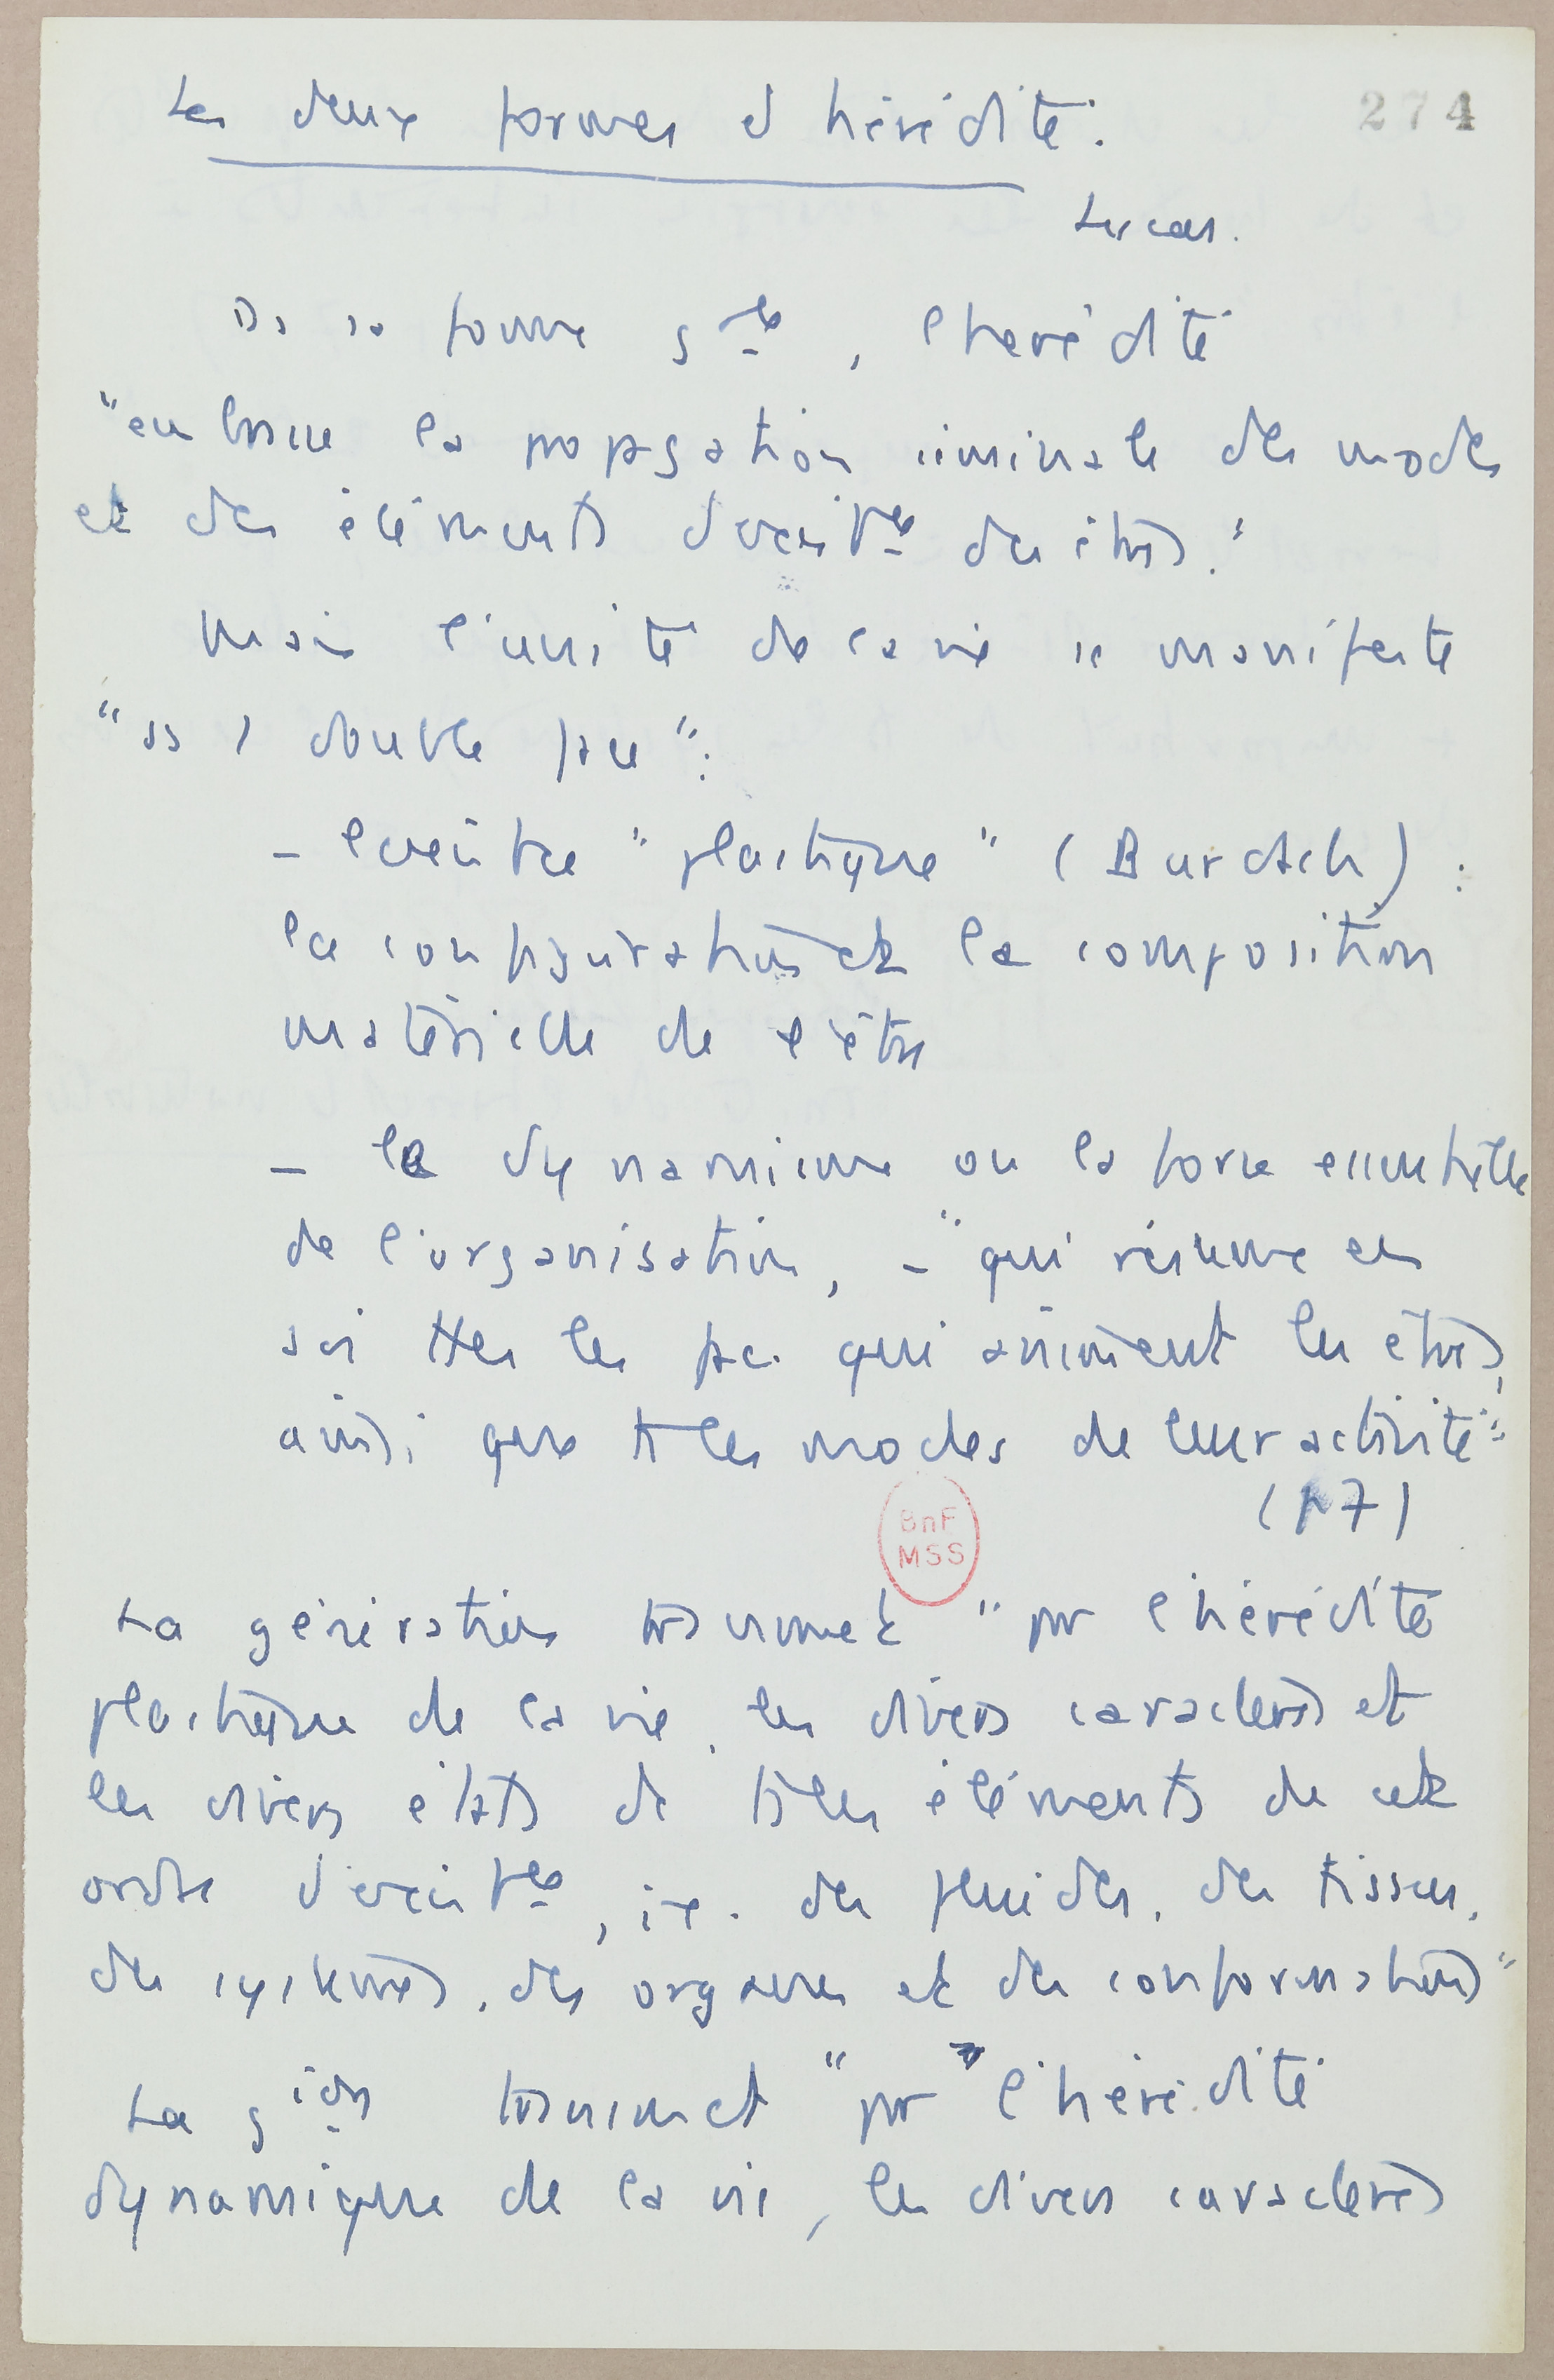 Les deux formes d'hérédité.
274
Lucas.
Ds sa forme gale, l'hérédité
"embrasse la propagation séminale des modes
et des éléments d'existce des êtres."
Mais l'unité de la vie se manifeste
"ss 1 double face":
- l'existce "plastique" (Burdach) :
la configuration et la composition
matérielle de l'être
- le dynamisme ou la force essentielle
de l'organisation, - "qui résume en
soi ttes les fac. qui animent les êtres,
ainsi que ts les modes de leur activité"
(17)
BnF
MSS
La génération transmet "par l'hérédité
plastique de la vie, les divers caractères et
les divers états de ts les éléments de cet
ordre d'existce, ie. des fluides, des tissus,
des systèmes, des organes et des conformations"
La gion transmet "par l'hérédité
dynamique de la vie, les divers caractères